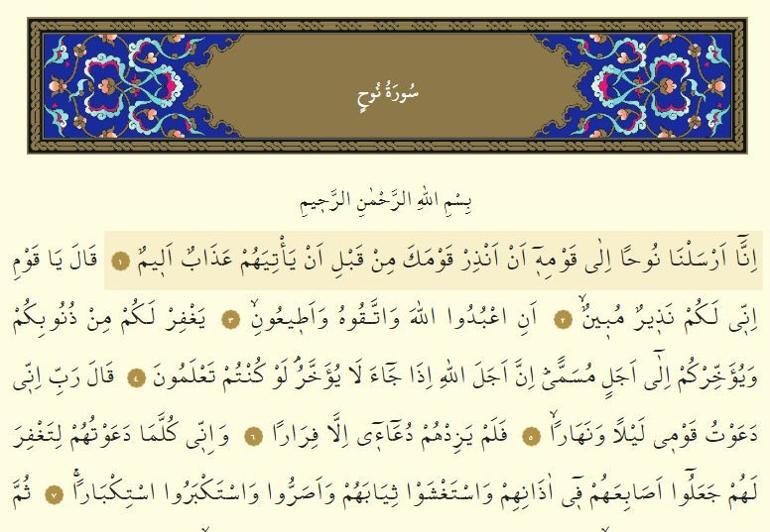 سُورَةُ نُوحٍ
بِسْمِ اللهِ الرَّحْمٰنِ الرَّحٖيمِ
اِنَّٓا اَرْسَلْنَا نُوحًا اِلٰى قَوْمِهٖٓ اَنْ اَنْذِرْ قَوْمَكَ مِنْ قَبْلِ اَنْ يَأْتِيَهُمْ عَذَابٌ اَلٖيمٌ ١ قَالَ يَا قَوْمِ
اِنّٖى لَكُمْ نَذٖيرٌ مُبٖينٌۙ ٢ اَنِ اعْبُدُوا اللهَ وَاتَّقُوهُ وَاَطٖيعُونِۙ ٣ يَغْفِرْ لَكُمْ مِنْ ذُنُوبِكُمْ
وَيُؤَخِّرْكُمْ اِلٰٓى اَجَلٍ مُسَمًّىؕ اِنَّ اَجَلَ اللهِ اِذَا جَٓاءَ لَا يُؤَخَّرُۢ لَوْ كُنْتُمْ تَعْلَمُونَ ٤ قَالَ رَبِّ اِنّٖى
دَعَوْتُ قَوْمٖى لَيْلًا وَنَهَارًاۙ ٥ فَلَمْ يَزِدْهُمْ دُعَٓاءٖٓى اِلَّا فِرَارًا ٦ وَاِنّٖى كُلَّمَا دَعَوْتُهُمْ لِتَغْفِرَ
لَهُمْ جَعَلُٓوا اَصَابِعَهُمْ فٖٓى اٰذَانِهِمْ وَاسْتَغْشَوْا ثِيَابَهُمْ وَاَصَرُّوا وَاسْتَكْبَرُوا اسْتِكْبَارًاۚ ٧ ثُمَّ